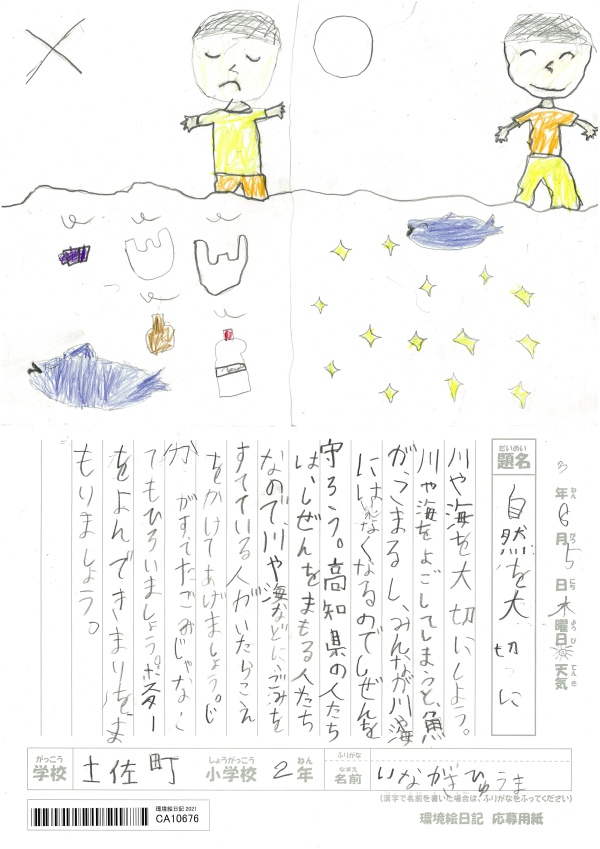 3年8月5日木曜日 天気
ねん がつ にち ようび てんき
だいめい
題名 自然を大切に
川や海を大切にしよう。
川や海をよごしてしまうと、魚
がつまるし、みんなが川や海
にはいなくなるのでしぜんを
守ろう。高知県の人たち
は、しぜんをまもる人たち
なので、川や海などにごみを
すてている人がいたらこえ
をかけてあげましょう。じ
分がすてたごみじゃなく
てもひろいましょう。ポスター
をよんできまりをま
もりましょう。
がっこう しょうがっこう ねん ふりがな なまえ
学校 土佐町 小学校 2年 名前 いながきひゅうま
(漢字で名前を書いた場合は、ふりがなをふってください)
環境絵日記 2021
CA10676
環境絵日記 応募用紙